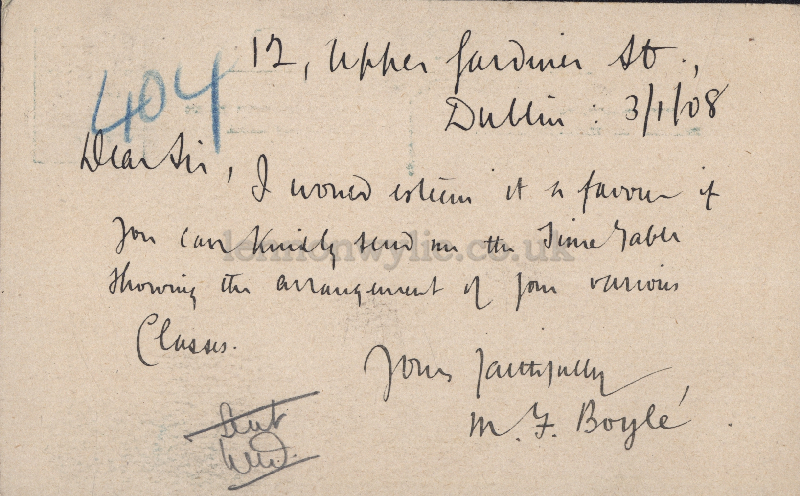 404
12, Upper Gardiner St.,
Dublin : 3/1/08
Dear Sir,
I would esteem it a favour if
you can kindly send me the Time Table
showing the arrangement of your various
Classes.
Yours faithfully
M. F. Boyle
Sent
lennonwylie.co.uk